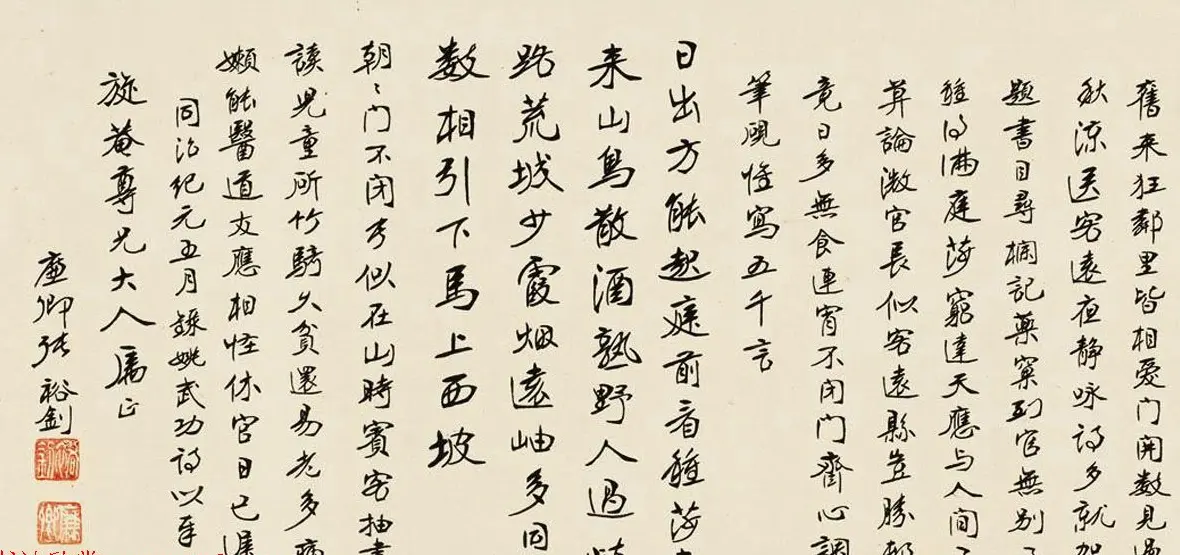 舊来狂鄰里皆相愛门開数見過
秋涼送客遠夜静咏詩多就架
題書目尋欄記藥窠到官無別
種得滿庭莎窮達天應与人間
算論微官長似客遠縣豈勝村
竟日多無食連宵不閉门齊心調
筆硯惟寫五千言
日出方能起庭前看種莎吏
来山鳥散酒熟野人過岐
路荒城少霞烟遠岫多同
数相引下馬上西坡
朝〻门不閉長似在山時賓客抽書
讀兒童斫竹騎久貧還易老多病
嬾能醫道友應相怪休官日已遲
同治紀元五月錄姚武功詩以奉
旋菴尊兄大人屬正
廉卿張裕釗
裕釗
廉卿